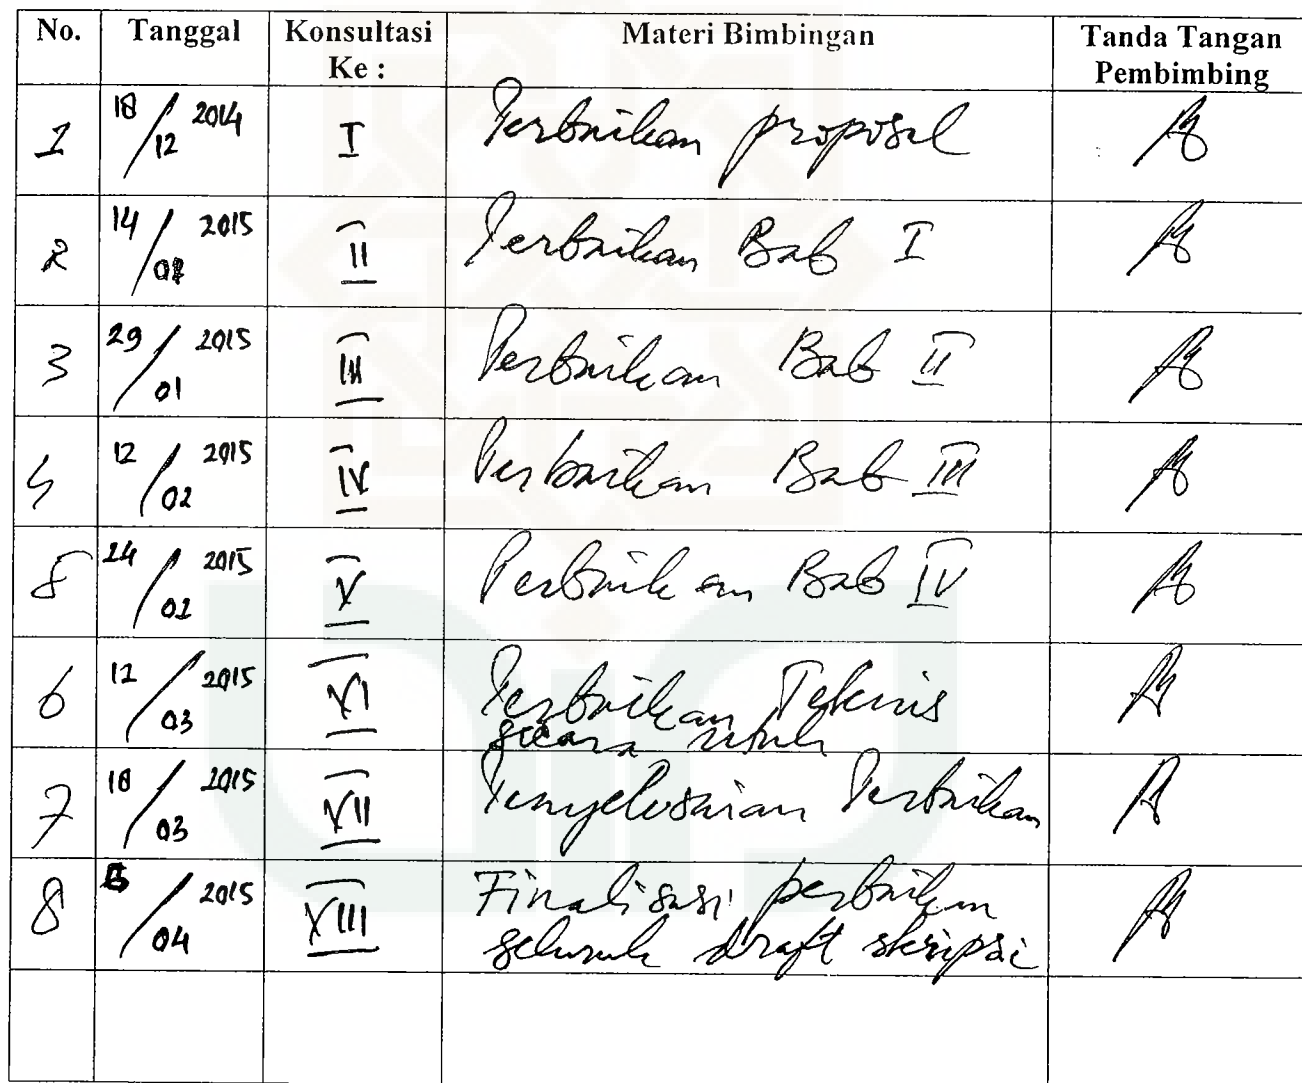 No. Tanggal Konsultasi Ke : Materi Bimbingan Tanda Tangan Pembimbing
1 18/12 2014 I Perbaikan proposal
2 14/01 2015 II Perbaikan Bab I
3 29/01 2015 III Perbaikan Bab II
4 12/02 2015 IV Perbaikan Bab III
5 24/02 2015 V Perbaikan Bab IV
6 12/03 2015 VI Perbaikan Teknis
secara utuh
7 18/03 2015 VII Penyelesaian Perbaikan
8 /04 2015 VIII Finalisasi perbaikan
seluruh draft skripsi